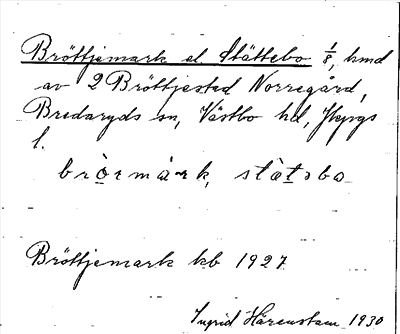 Bröttjemark el Stättebo 1/8, hmd
av 2 Bröttjestad Norregård,
Bredaryds sn, Västbo hd, Jkpgs
l.
bròrmàrk, stàtəbo
Bröttjemark kb 1927
Ingrid Härenstam 1930